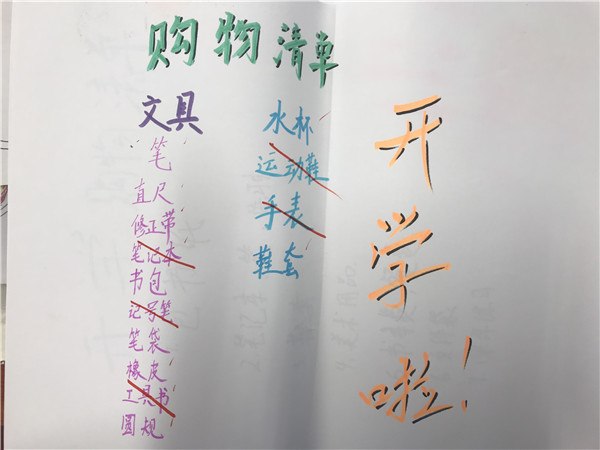 购物清单
文具
笔
直尺
修正带
笔记本
书包
记号笔
笔袋
橡皮
工具书
圆规
水杯
运动鞋
手表
鞋套
开学啦!